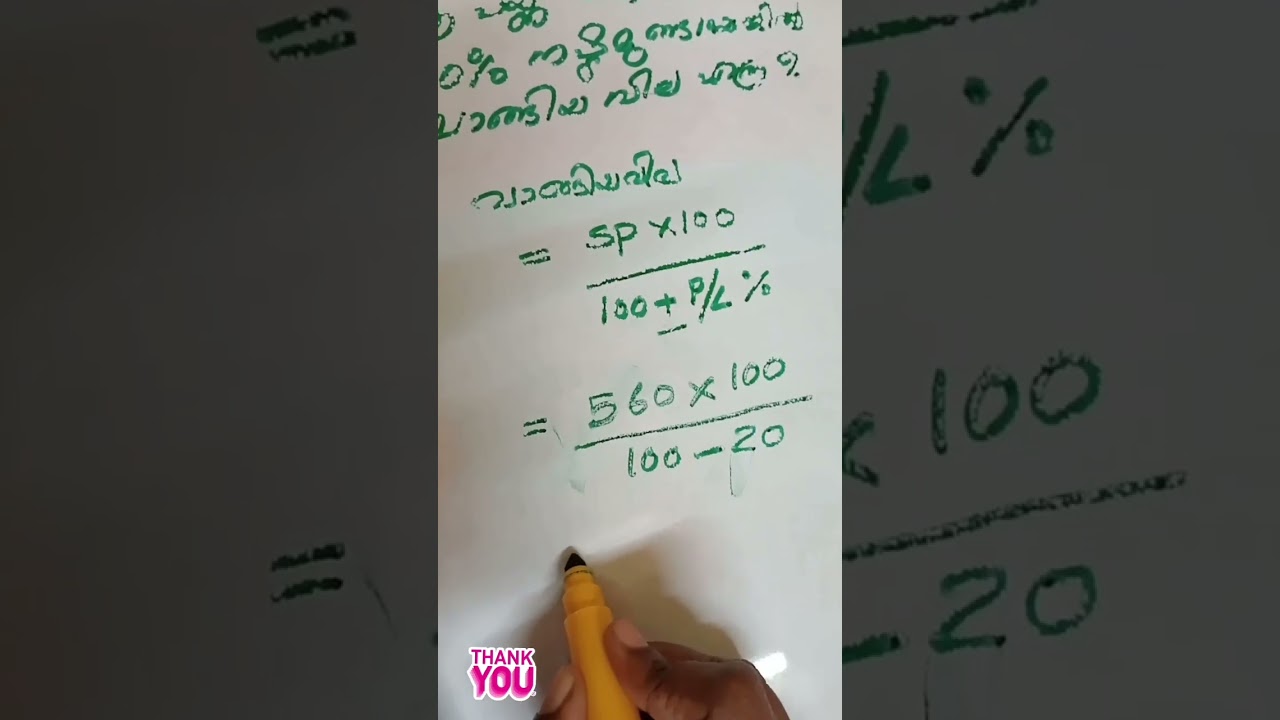 0% നഷ്ടമുണ്ടായെങ്കിൽ
വാങ്ങിയ വില എത്ര?
വാങ്ങിയവില
= SP × 100
100 + P/L %
= 560 × 100
100 - 20
THANK
YOU